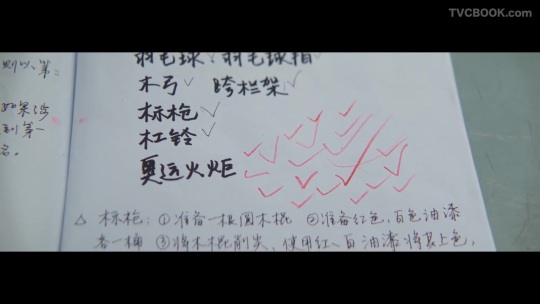 TVCBOOK.com
羽毛球、羽毛球拍
木弓 跨栏架
标枪
杠铃
奥运火炬
△ 标枪：①准备一根圆木棍 ②准备红色、白色油漆
各一桶 ③将木棍削尖，使用红、白油漆将其上色，
则以、第
如果没
到第一
名。